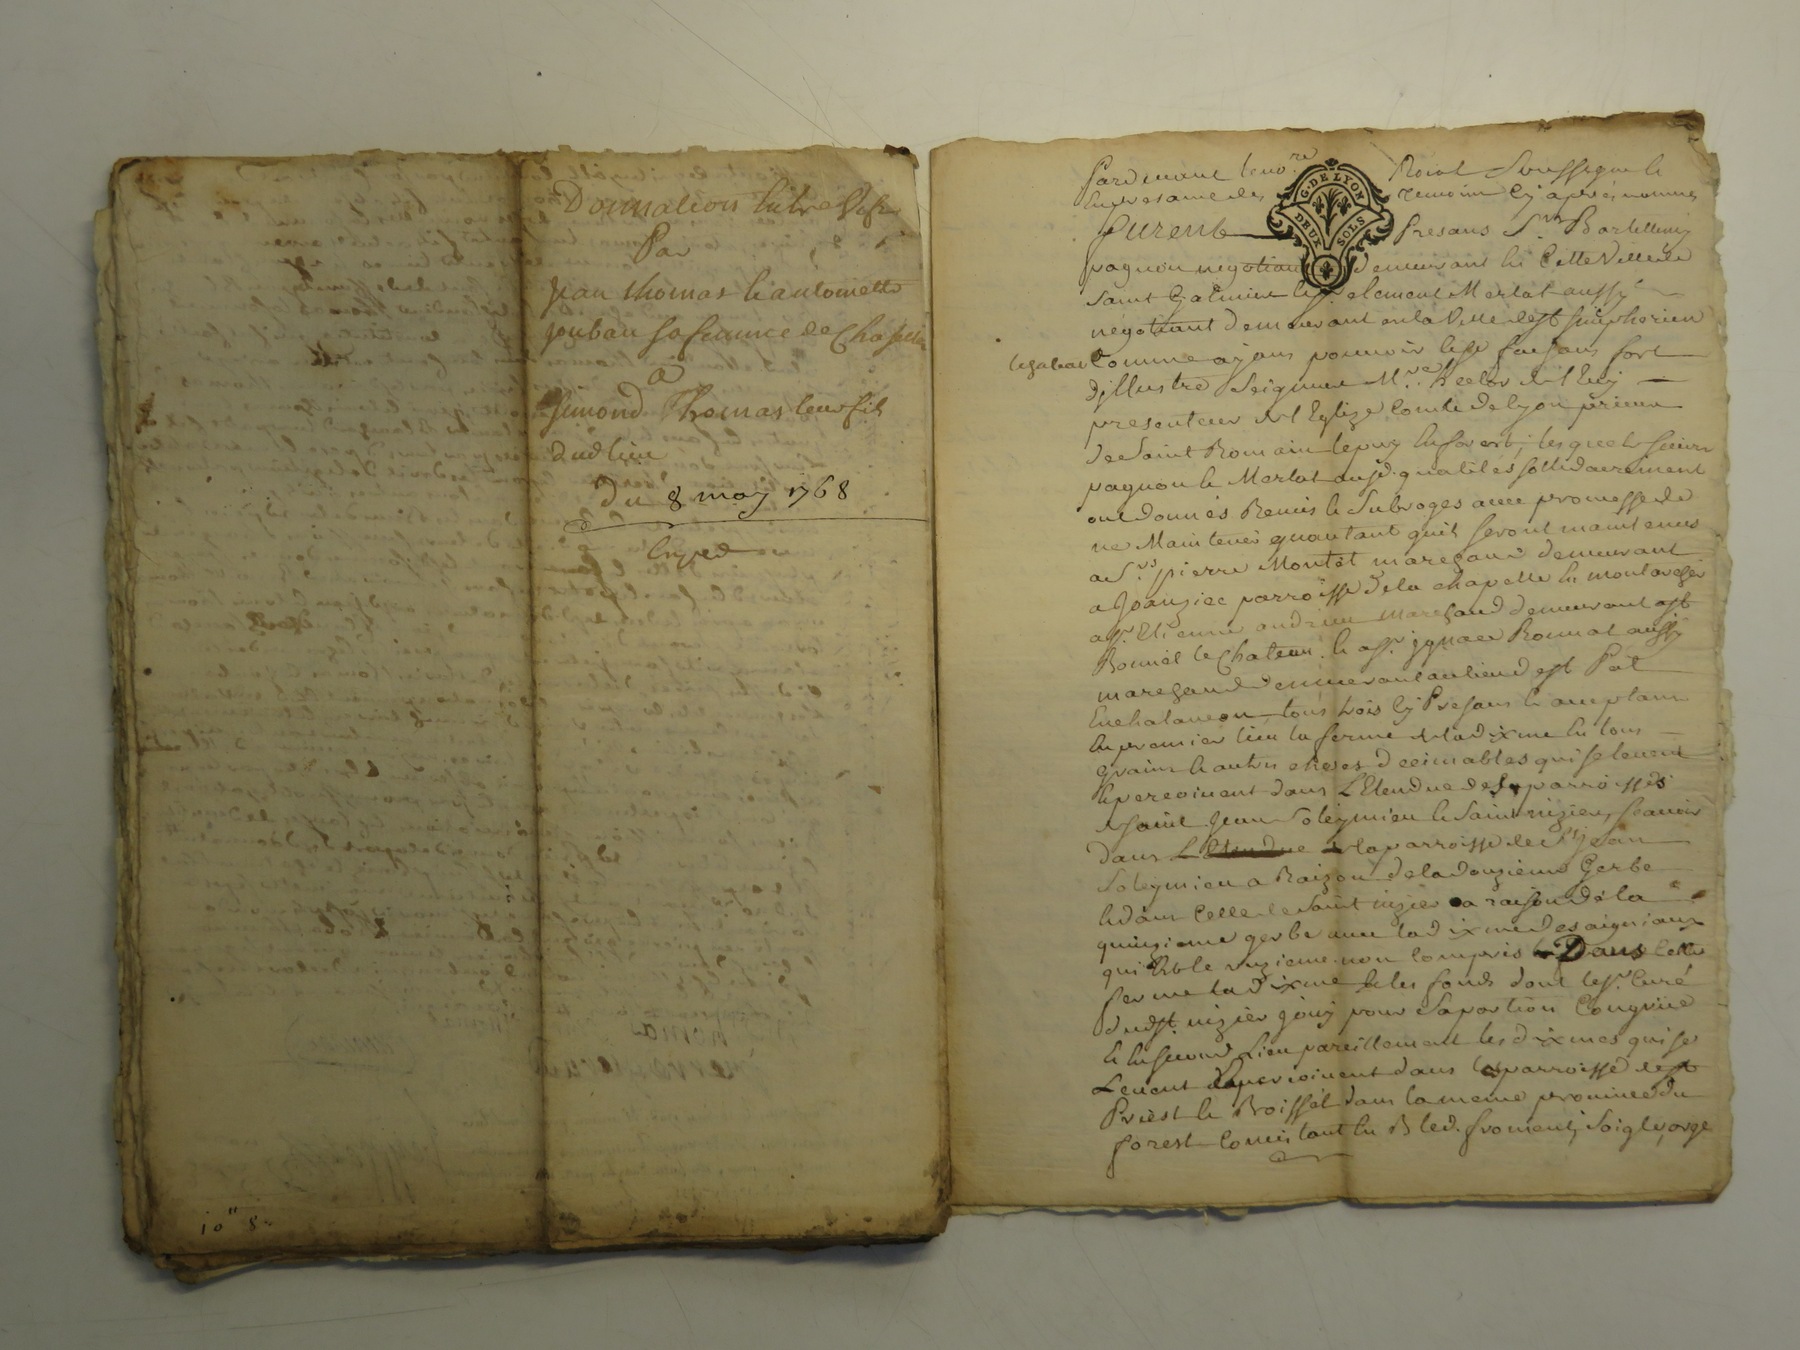 Donnation entre Vifs
Par
Jean thomas et antoinette
joubau sa femme de Chaselle
a
Simond Thomas leur fil
dud lieu
Du 8 may 1768
10" 8
Pardevant le no.re Roial Soussigne et
En presance des temoins Cy après nommes
furent Presans Sr. Bartellemy
pagnon negotiant demeurant en Cette Ville de
saint Galmier et Sr. Clement Merlat aussy
négotiant demeurant en la Ville de St Simphorien
le chateau
Comme ayans pouvoir et se faisans fort
D'jllustre Seigneur M.re Hector de
presenteur de l'Eglize Comte de Lyon prieur
de Saint Romain le puy en forest, lesquels sieurs
pagnon et Merlat ausd. qualités sollidairement
ont donnés Remis et Subroges avec promesse de
ne Maintenir quautant quils seront maintenus
a Srs pierre Montét marchand demeurant
a parroisse de la chapelle en
a Sr. Etienne andrieu marchand demeurant a St
Bonnét le Chateau, et a Sr. jgnace Bonnat aussy
marchand demeurant au lieu de St Pal
En chalancon, tous trois Cy Presans et aceptans
En premier lieu la ferme de la dixme en tous
grains et autres choses decimables qui se levent
et percoivent dans L'Etendue des parroisses
de saint Jean Soleymieu et Saint nizier, scavoir
dans L'Etendue de la parroisse de St Jean
Soleymieu a Raizon de la douzieme Gerbe
et dans Celle de Saint nizier a raison de la
quinzieme gerbe avec la dixme des aigniaux
qui est le onzieme non Compris Dans Cette
ferme la dixme et les fonds dont le Sr. Curé
dudSt. nizier jouy pour Saportion Congruë
et En second Lieu pareillement les dixmes qui se
Levent et percoivent dans la parroisse de St
Priest et Boissét dans la meme province du
forest Comis tant en Bled. froment, soigle, orge